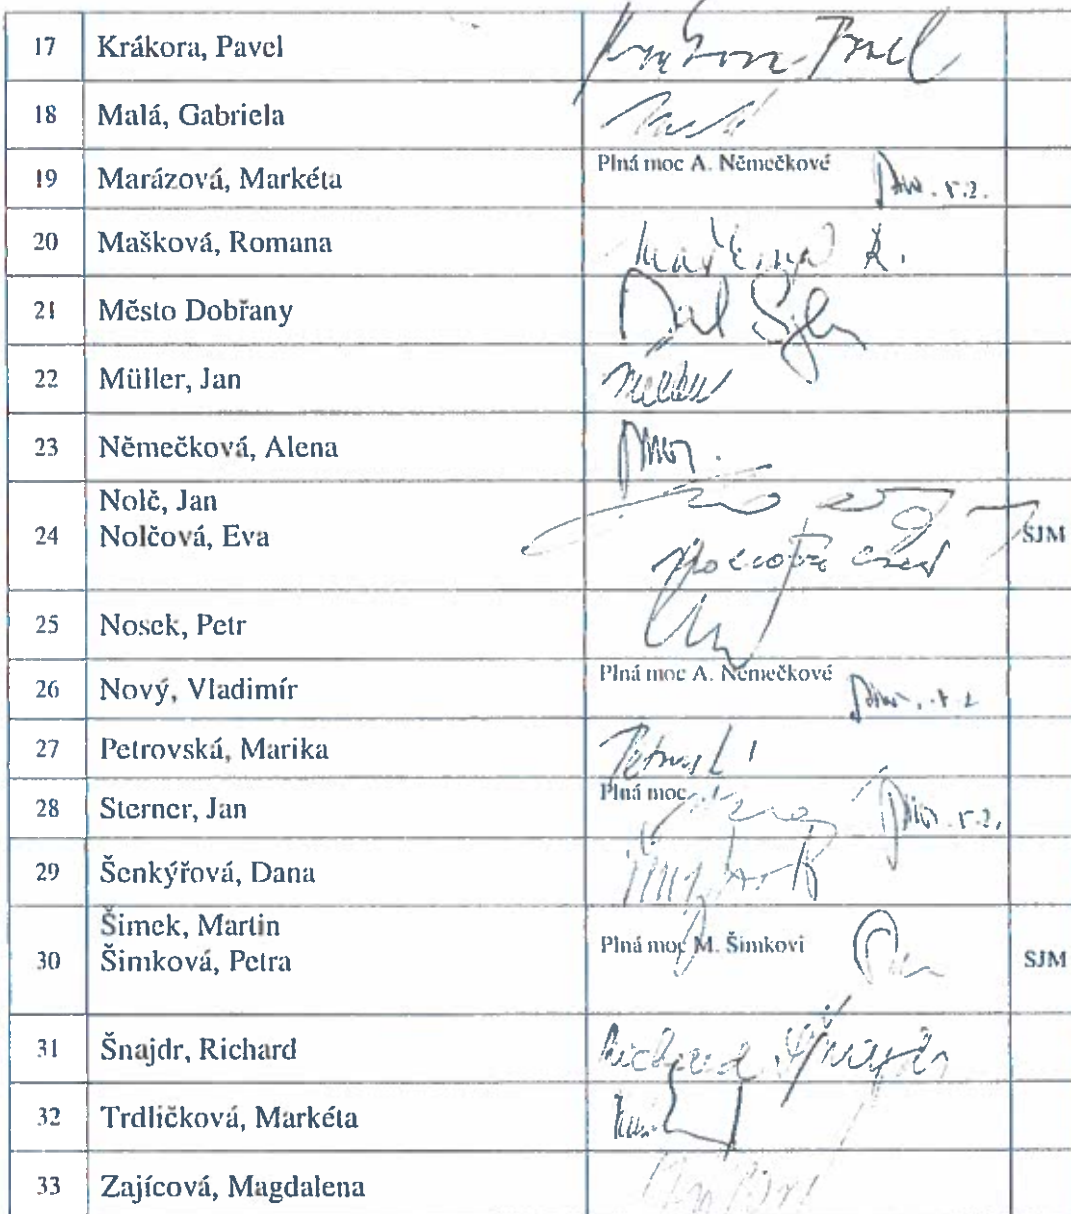 17 Krákora, Pavel
18 Malá, Gabriela
19 Marázová, Markéta Plná moc A. Němečkové
20 Mašková, Romana Mašková R.
21 Město Dobřany
22 Müller, Jan Müller
23 Němečková, Alena
24 Nolč, Jan
Nolčová, Eva SJM
25 Nosek, Petr
26 Nový, Vladimír Plná moc A. Němečkové
27 Petrovská, Marika
28 Sterner, Jan Plná moc
29 Šenkýřová, Dana
30 Šimek, Martin
Šimková, Petra Plná moc M. Šimkovi SJM
31 Šnajdr, Richard Richard Šnajdr
32 Trdličková, Markéta
33 Zajícová, Magdalena